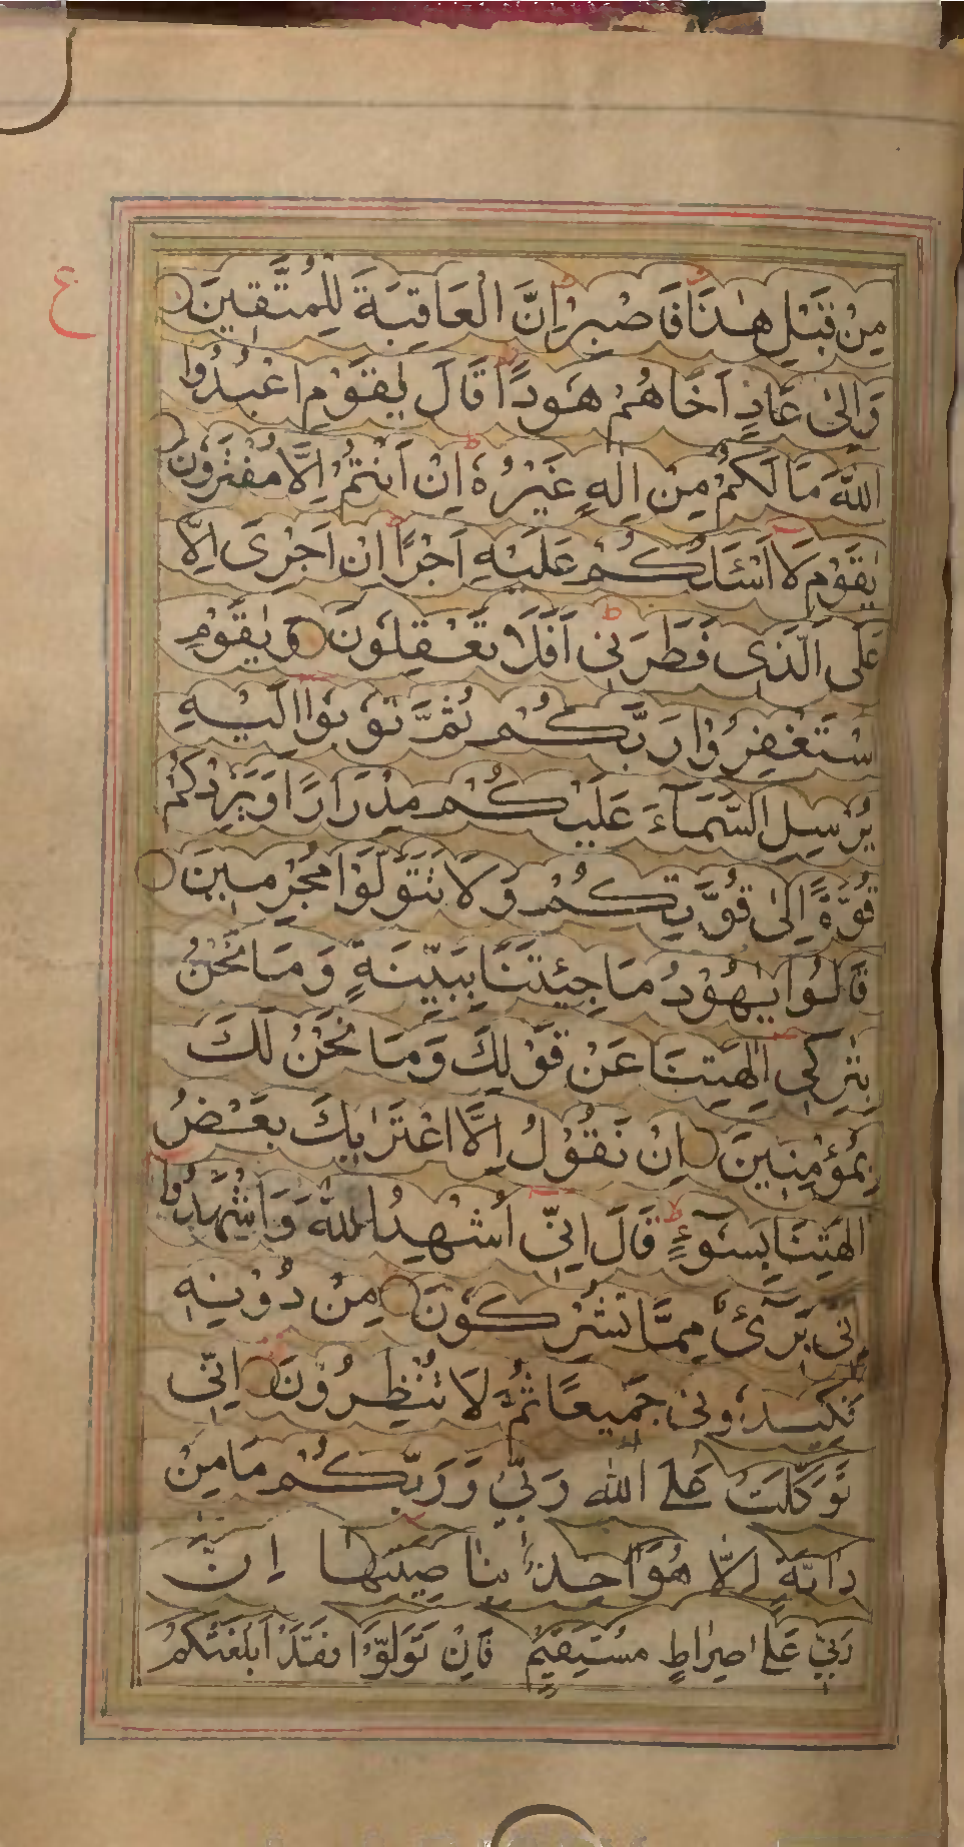 ع
مِنْ قَبْلِ هٰذَا فَاصْبِرْ اِنَّ الْعَاقِبَةَ لِلْمُتَّقِيْنَ
وَاِلٰى عَادٍ اَخَاهُمْ هُودًا قَالَ يٰقَوْمِ اعْبُدُوا
اللّٰهَ مَا لَكُمْ مِنْ اِلٰهٍ غَيْرُهٗ اِنْ اَنْتُمْ اِلَّا مُفْتَرُوْنَ
يٰقَوْمِ لَا اَسْئَلُكُمْ عَلَيْهِ اَجْرًا اِنْ اَجْرِيَ اِلَّا
عَلَى الَّذِى فَطَرَنِى اَفَلَا تَعْقِلُوْنَ وَيٰقَوْمِ
سْتَغْفِرُوْا رَبَّكُمْ ثُمَّ تُوْبُوْا اِلَيْهِ
يُرْسِلِ السَّمَآءَ عَلَيْكُمْ مِدْرَارًا وَيَزِدْكُمْ
قُوَّةً اِلٰى قُوَّتِكُمْ وَلَا تَتَوَلَّوْا مُجْرِمِيْنَ
قَالُوْا يٰهُوْدُ مَا جِئْتَنَا بِبَيِّنَةٍ وَمَا نَحْنُ
بِتَرِكِى اٰلِهَتِنَا عَنْ قَوْلِكَ وَمَا نَحْنُ لَكَ
بِمُؤْمِنِيْنَ اِنْ نَقُوْلُ اِلَّا اعْتَرٰيكَ بَعْضُ
اٰلِهَتِنَا بِسُوْٓءٍ قَالَ اِنِّى اُشْهِدُ اللّٰهَ وَاشْهَدُوا
اَنِّى بَرِىْٓءٌ مِمَّا تُشْرِكُوْنَ مِنْ دُوْنِهٖ
فَكِيْدُوْنِى جَمِيْعًا ثُمَّ لَا تُنْظِرُوْنَ اِنِّى
تَوَكَّلْتُ عَلَى اللّٰهِ رَبِّى وَرَبِّكُمْ مَا مِنْ
دَابَّةٍ اِلَّا هُوَ اٰخِذٌ بِنَاصِيَتِهَا اِنَّ
رَبِّى عَلٰى صِرَاطٍ مُسْتَقِيْمٍ فَاِنْ تَوَلَّوْا فَقَدْ اَبْلَغْتُكُمْ